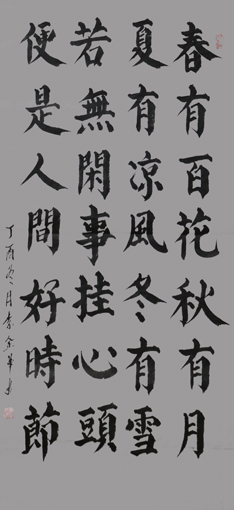 春有百花秋有月
夏有凉風冬有雪
若無閑事挂心頭
便是人間好時節
丁酉冬月李金華書